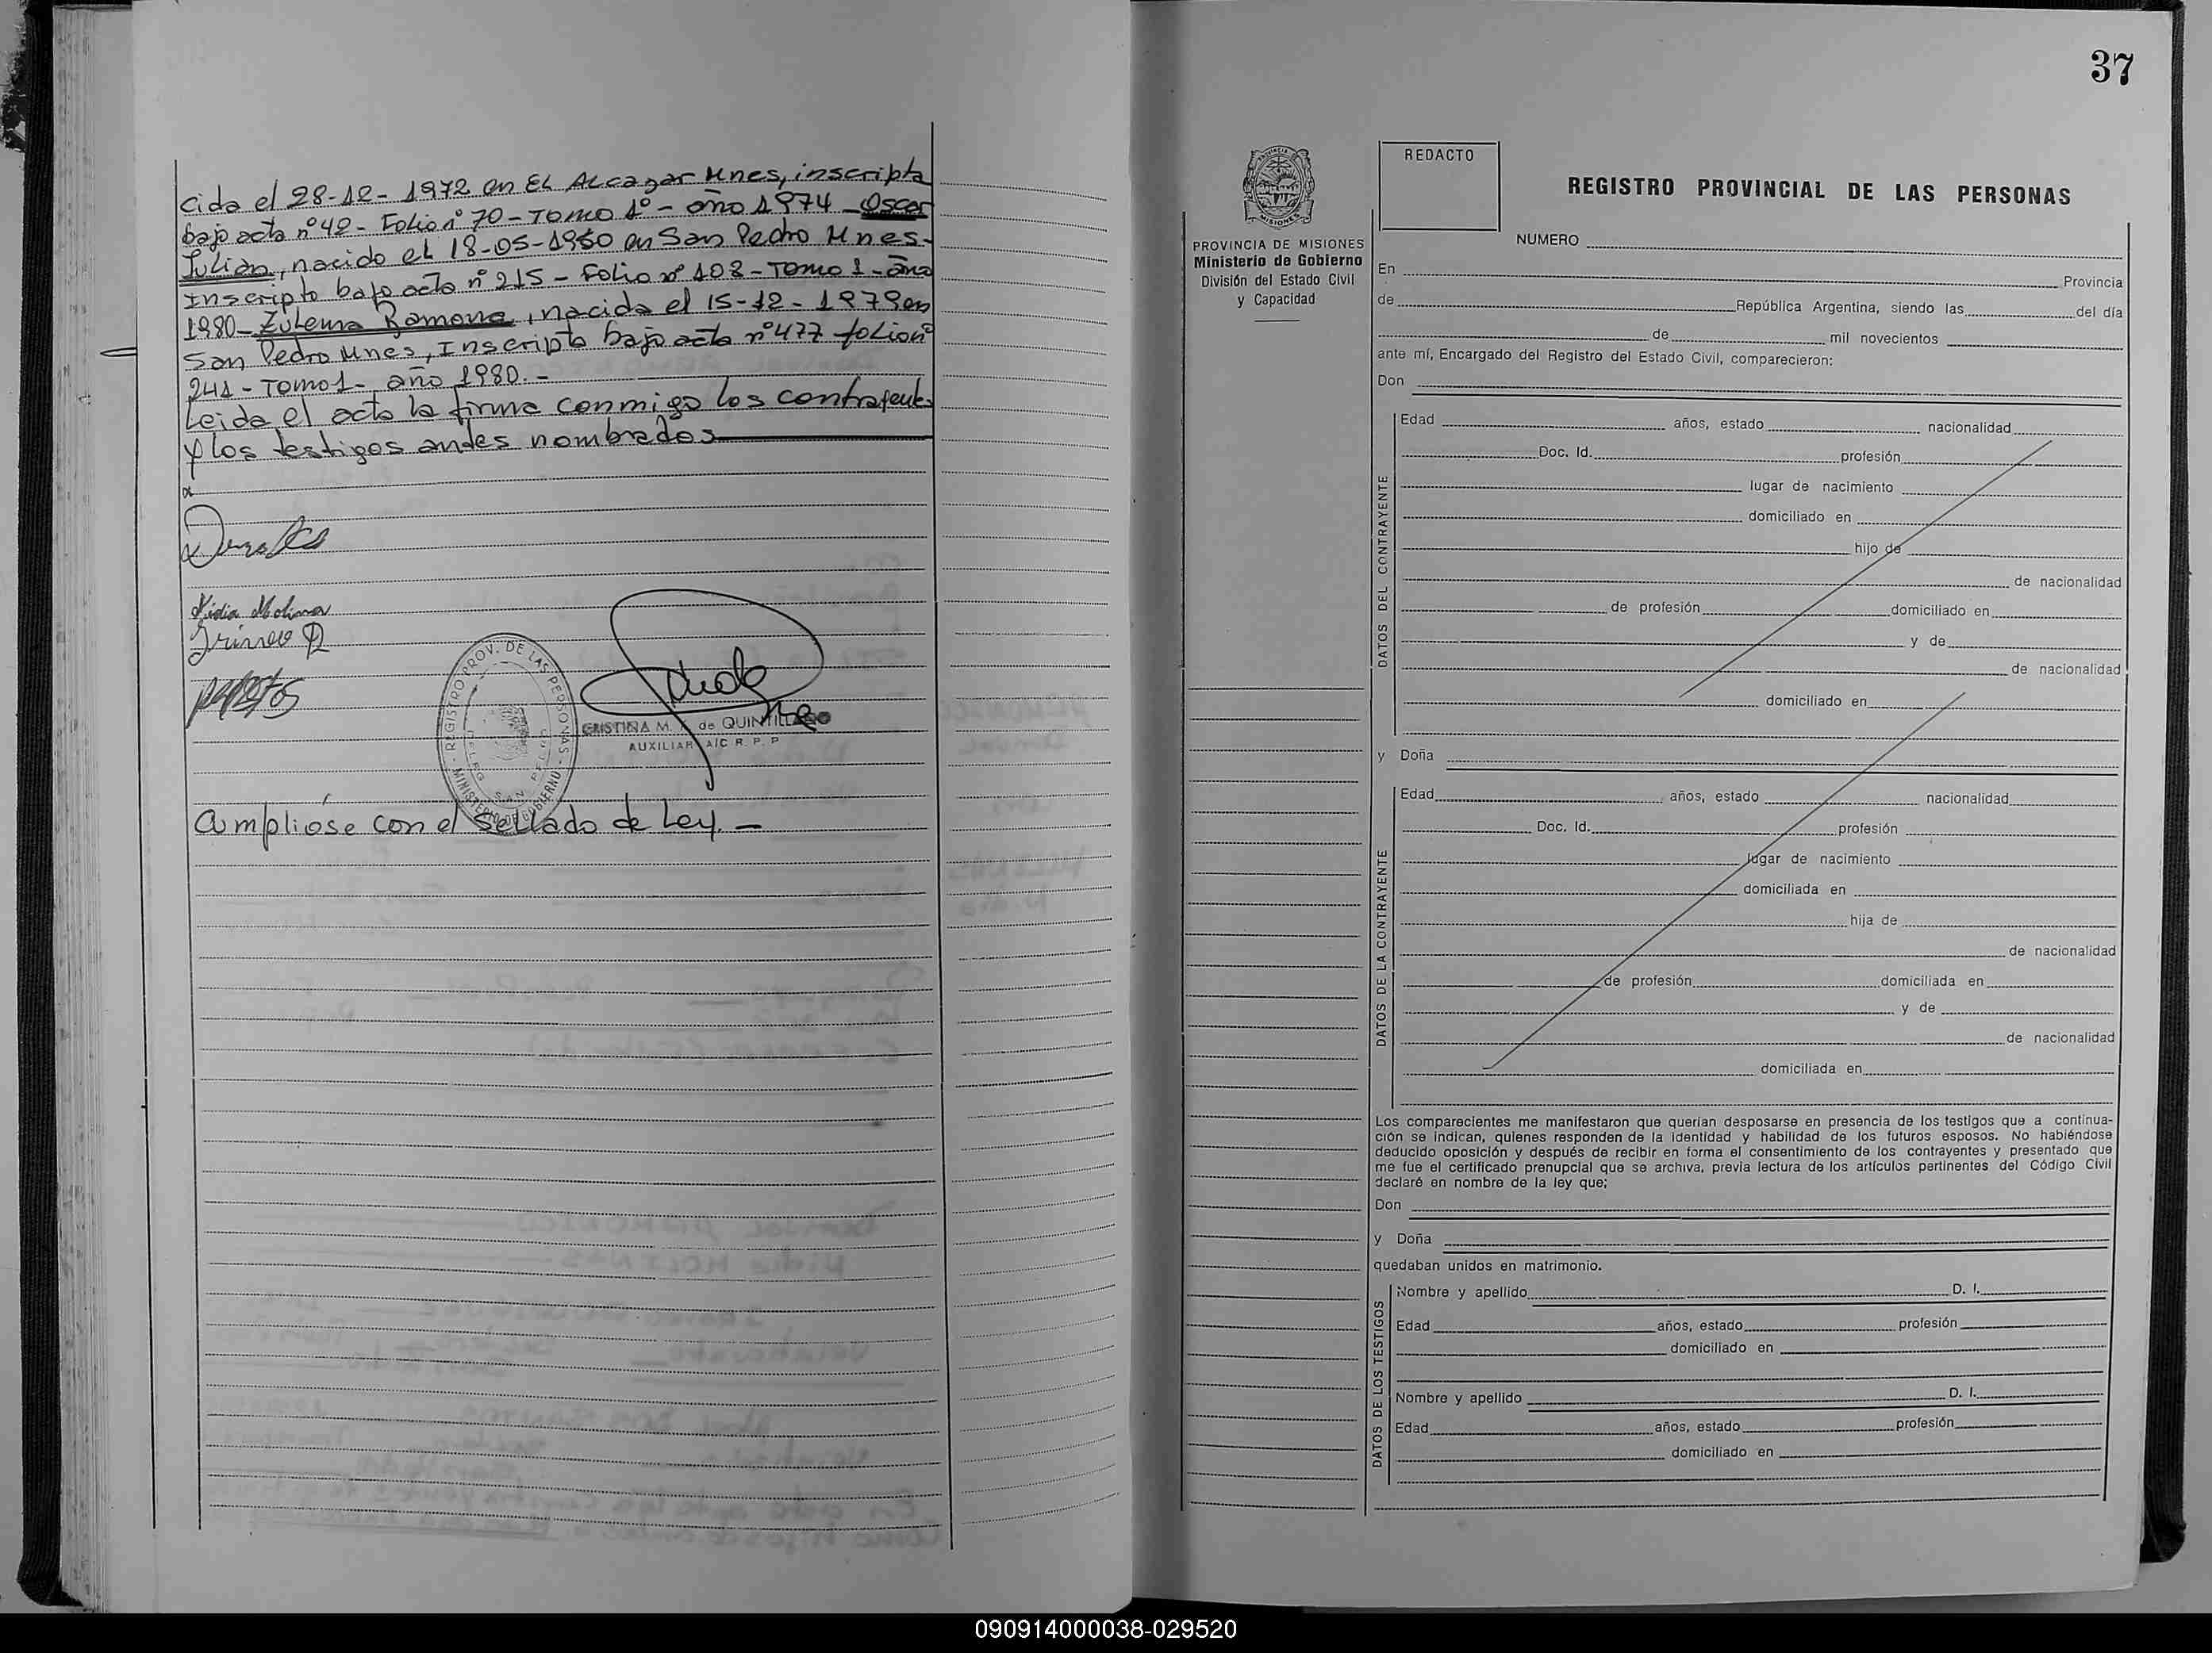 cida el 28-12-1972 en EL Alcazar Mnes, inscripta
bajo acta nº 42 - Folio nº 70 - Tomo 1º - año 1974 - Oscar
Julian, nacido el 18-05-1980 en San Pedro Mnes.
Inscripto bajo acta nº 215 - Folio nº 108 - Tomo 1 - año
1980 - Zulema Ramona, nacida el 15-12-1979 en
San Pedro Mnes, Inscripta bajo acta nº 477 folio nº
241 - Tomo 1 - año 1980. -
Leida el acta la firma conmigo los contrayentes
y los testigos antes nombrados
Nidia Molina
REGISTRO PROV. DE LAS PERSONAS - MINISTERIO DE GOBIERNO
CRISTINA M. de QUINTILLANO
AUXILIAR A/C R. P. P
Cumplióse con el Sellado de Ley. -
37
PROVINCIA DE MISIONES
Ministerio de Gobierno
División del Estado Civil
y Capacidad
REDACTO
REGISTRO PROVINCIAL DE LAS PERSONAS
NUMERO
En Provincia
de República Argentina, siendo las del día
de mil novecientos
ante mí, Encargado del Registro del Estado Civil, comparecieron:
Don
DATOS DEL CONTRAYENTE
Edad años, estado nacionalidad
Doc. Id. profesión
lugar de nacimiento
domiciliado en
hijo de
de nacionalidad
de profesión domiciliado en
y de
de nacionalidad
domiciliado en
y Doña
DATOS DE LA CONTRAYENTE
Edad años, estado nacionalidad
Doc. Id. profesión
lugar de nacimiento
domiciliada en
hija de
de nacionalidad
de profesión domiciliada en
y de
de nacionalidad
domiciliada en
Los comparecientes me manifestaron que querían desposarse en presencia de los testigos que a continua-
ción se indican, quienes responden de la identidad y habilidad de los futuros esposos. No habiéndose
deducido oposición y después de recibir en forma el consentimiento de los contrayentes y presentado que
me fue el certificado prenupcial que se archiva, previa lectura de los artículos pertinentes del Código Civil
declaré en nombre de la ley que;
Don
y Doña
quedaban unidos en matrimonio.
DATOS DE LOS TESTIGOS
Nombre y apellido D. I.
Edad años, estado profesión
domiciliado en
Nombre y apellido D. I.
Edad años, estado profesión
domiciliado en
090914000038-029520